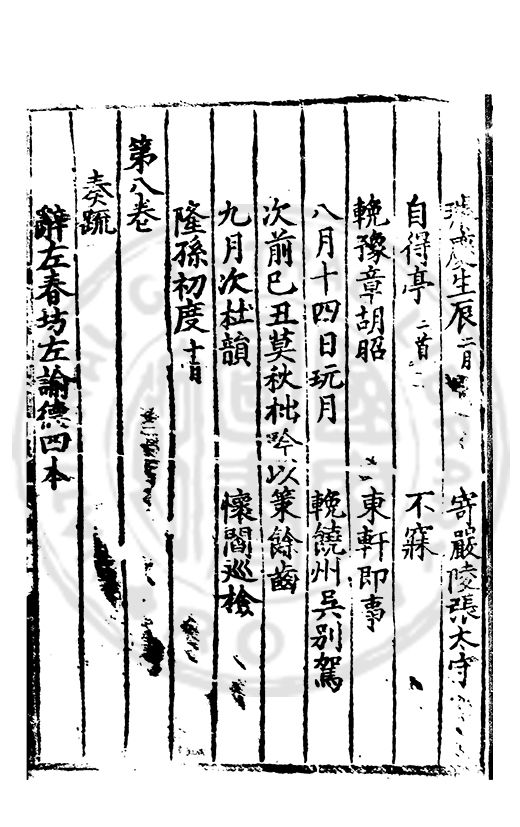 慶生辰二月 寄嚴陵張太守
自得亭二首 不寐
輓豫章胡昭 東軒即事
八月十四日玩月 輓饒州吳別駕
次前己丑莫秋拙吟以策餘齒
九月次杜韻 懷閻巡檢
隆孫初度十月
第八卷
奏䟽
辭左春坊左諭德四本